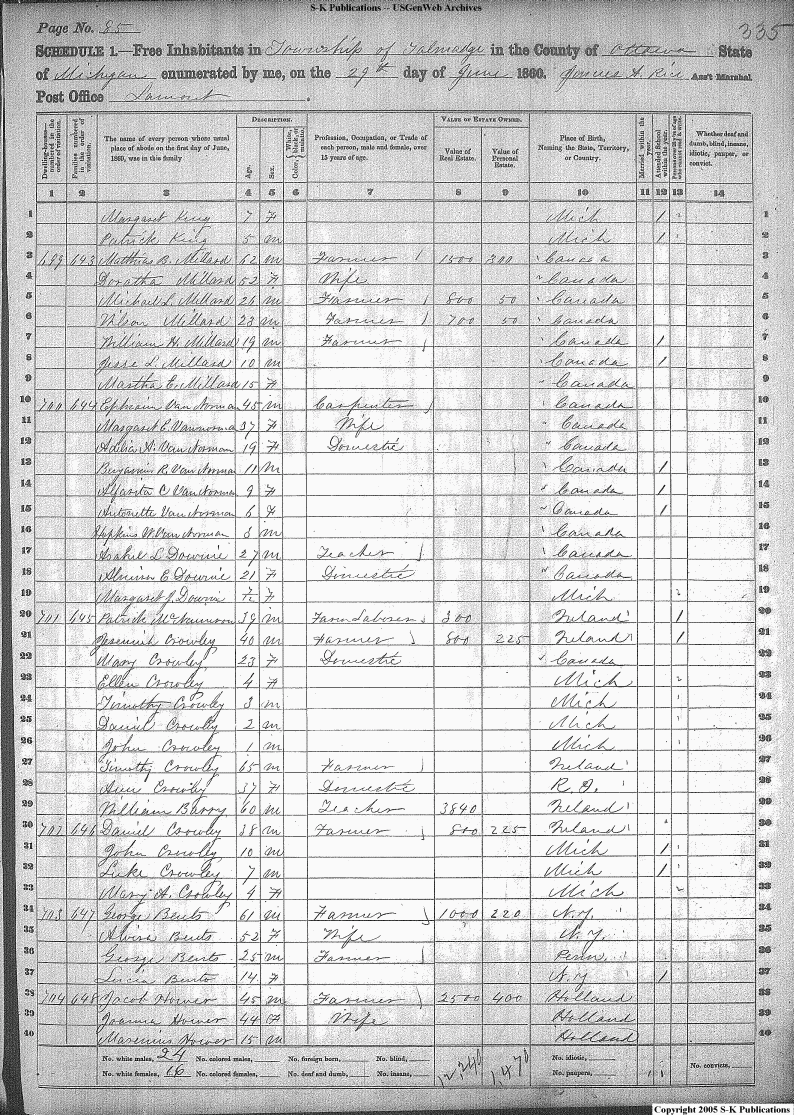 S-K Publications -- USGenWeb Archives
Page No. 85
335
SCHEDULE 1.—Free Inhabitants in Township of Talmadge in the County of Ottawa State
of Michigan enumerated by me, on the 29th day of June 1860. Ass't Marshal
Post Office Lamont.
DESCRIPTION. VALUE OF ESTATE OWNED.
Dwelling-houses—numbered in the order of visitation. Families numbered in the order of visitation. The name of every person whose usual place of abode on the first day of June, 1860, was in this family Age. Sex. Color, White, black, or mulatto. Profession, Occupation, or Trade of each person, male and female, over 15 years of age. Value of Real Estate. Value of Personal Estate. Place of Birth, Naming the State, Territory, or Country. Married within the year. Attended School within the year. Whether deaf and dumb, blind, insane, idiotic, pauper, or convict.
1 2 3 4 5 6 7 8 9 10 11 12 13 14
1 Margaret King 7 F Mich / 1
2 Patrick King 5 m Mich / 2
3 699 643 Matthias B. Millard 62 m Farmer 1500 300 Canada 3
4 Doratha Millard 52 F Wife Canada 4
5 Michael L. Millard 26 m Farmer 800 50 Canada 5
6 Wilson Millard 23 m Farmer 700 50 Canada 6
7 William H. Millard 19 m Farmer Canada / 7
8 Jesse L. Millard 10 m Canada / 8
9 Martha E. Millard 15 F Canada 9
10 700 644 Ephraim Van Norman 45 m Carpenter Canada 10
11 Margaret E. Vannorman 37 F Wife Canada 11
12 Van Norman 19 F Domestic Canada 12
13 Benjamin R. Van Norman 11 m Canada / 13
14 C Van Norman 9 F Canada / 14
15 Antonette Van Norman 6 F Canada / 15
16 Hopkins W. Van Norman 3 m Canada 16
17 Asahel L. Downie 27 m Teacher Canada 17
18 Almira E. Downie 21 F Domestic Canada 18
19 Margaret J. Downie F Mich 19
20 701 645 Patrick 39 m Farm Laborer 300 Ireland / 20
21 Jeremiah Crowley 40 m Farmer 800 225 Ireland / 21
22 Mary Crowley 23 F Domestic Canada 22
23 Ellen Crowley 4 F Mich 23
24 Timothy Crowley 3 m Mich 24
25 Daniel Crowley 2 m Mich 25
26 John Crowley 1 m Mich 26
27 Timothy Crowley 65 m Farmer Ireland 27
28 Ann Crowley 37 F Domestic R.I. 28
29 William Barry 60 m Teacher 3840 Ireland 29
30 702 646 Daniel Crowley 38 m Farmer 800 225 Ireland 30
31 John Crowley 10 m Mich / 31
32 Luke Crowley 7 m Mich / 32
33 Mary A. Crowley 4 F Mich 33
34 703 647 George Bents 61 m Farmer 1000 220 N.Y. 34
35 Alvira Bents 52 F Wife N.Y. 35
36 George Bents 25 m Farmer Penn. 36
37 Lucia Bents 14 F N.Y / 37
38 704 648 Jacob Hower 45 m Farmer 2500 400 Holland 38
39 Joanna Hower 44 F Wife Holland 39
40 Marenius Hower 15 m Holland 40
No. white males, 24 No. colored males, No. foreign born, No. blind, No. idiotic, No. convicts,
No. white females, 16 No. colored females, No. deaf and dumb, No. insane, No. paupers,
1,470
Copyright 2005 S-K Publications